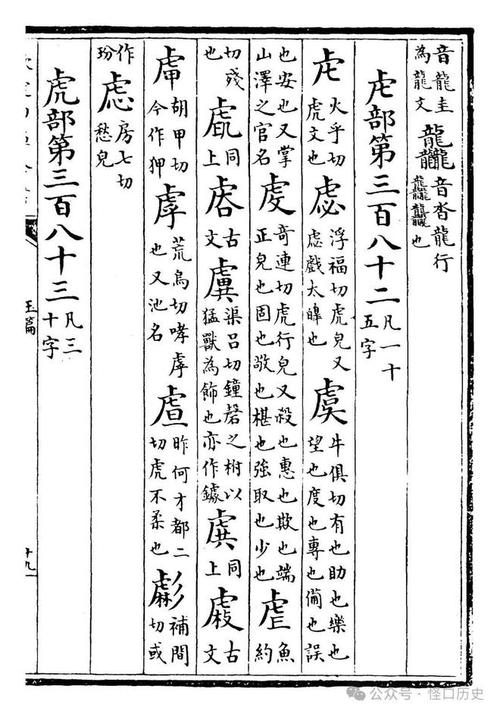 音龍圭為龍文 龘 音沓龍行龘龘也
虍部第三百八十二 凡一十五字
虍 火乎切虎文也 虙 浮福切虎皃又虙戲太皥也 虞 牛俱切有也助也樂也望也度也專也備也誤
也安也又掌山澤之官名 虔 奇連切虎行皃又殺也惠也欺也端正皃也固也敬也椹也強取也少也 虐 魚約
切殘也 同上 古文 虡 渠呂切鐘磬之柎以猛獸為飾也亦作鐻 同上 古文
胡甲切今作狎 虖 荒烏切哮虖也又池名 䖈 昨何才都二切虎不柔也 補間切或
作玢 房七切愁皃
虎部第三百八十三 凡三十字
玉篇
十九
公众号 · 怪口历史